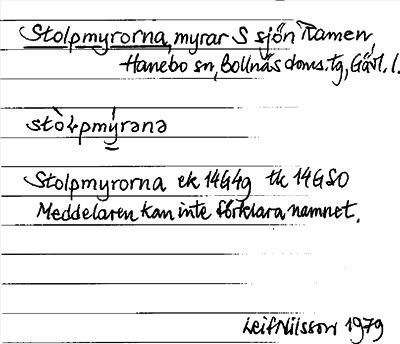 Stolpmyrorna, myrar S sjön Ramen,
Hanebo sn, Bollnäs doms. tg, Gävl. l.
stòḷpmýrənə
Stolpmyrorna ek 14G4g tk 14GSO
Meddelaren kan inte förklara namnet.
Leif Nilsson 1979